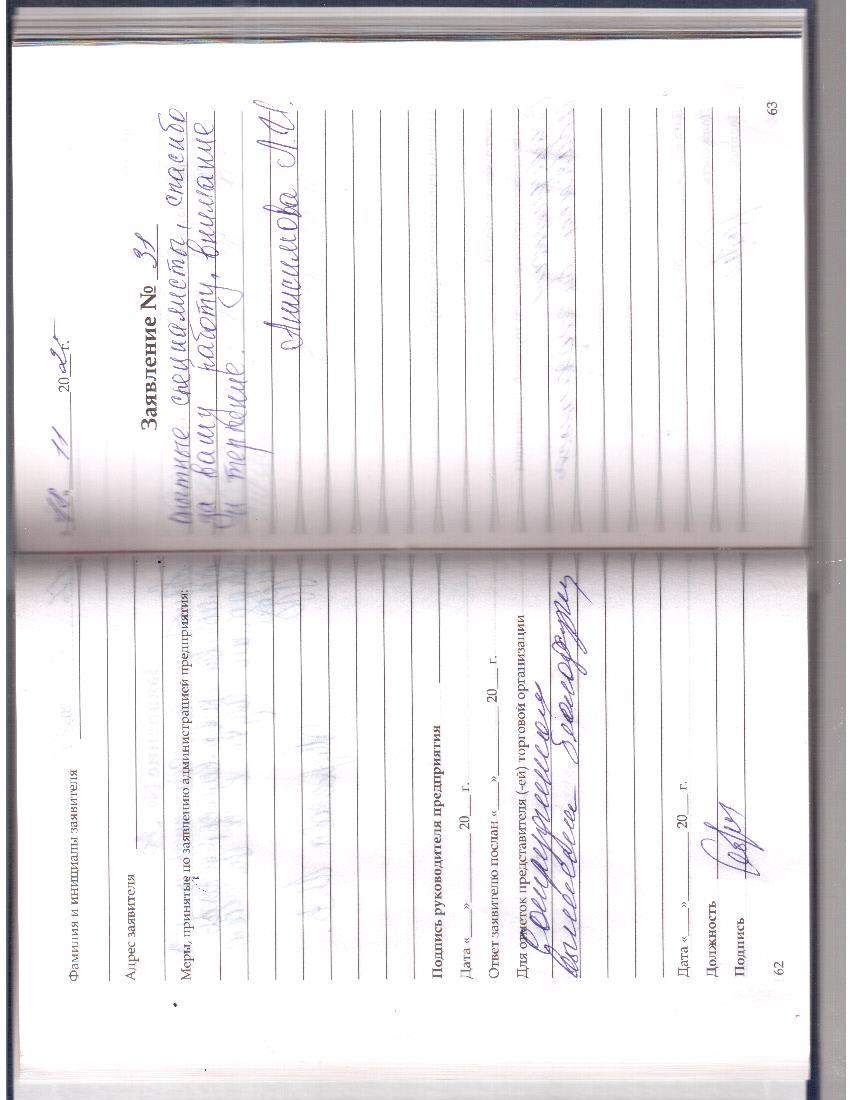 Фамилия и инициалы заявителя
Адрес заявителя
Меры, принятые по заявлению администрацией предприятия:
Подпись руководителя предприятия
Дата «____»________ 20___ г.
Ответ заявителю послан «____»________ 20___ г.
Для отметок представителя (-ей) торговой организации
сотрудникам
вынесена благодарность
Дата «____»________ 20___ г.
Должность
Подпись
62
11 2025 г.
Заявление № 31
опытные специалисты, спасибо
за вашу работу, внимание
и терпение.
Анисимова Л.И.
63